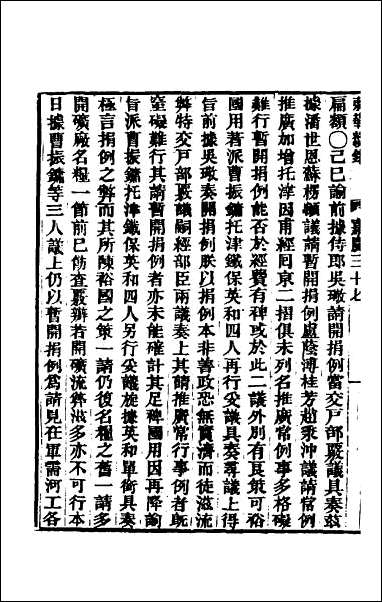 東華續錄 嘉慶三十七
扁額〇己巳諭前據侍郎吳璥請開捐例當交戶部嚴議具奏茲
據潘世恩蘇楞額議請暫開捐例盧蔭溥桂芳趙秉沖議請常例
推廣加增托津因甫經囘京二摺俱未列名推廣常例事多格礙
難行暫開捐例能否於經費有裨或於此二議外別有良策可裕
國用著派曹振鏞托津鐵保英和四人再行妥議具奏尋議上得
旨前據吳璥奏開捐例朕以捐例本非善政恐無實濟而徒滋流
弊特交戶部嚴議嗣經部臣兩議奏上其請推廣常行事例者旣
窒礙難行其請暫開捐例者亦未能確計其足裨國用因再降諭
旨派曹振鏞托津鐵保英和四人另行妥議旋據英和單銜具奏
極言捐例之弊而其所陳裕國之策一請仍復名糧之舊一請多
開礦廠名糧一節前已飭查覈辦若開礦流弊滋多亦不可行本
日據曹振鏞等三人議上仍以暫開捐例爲請見在軍需河工各